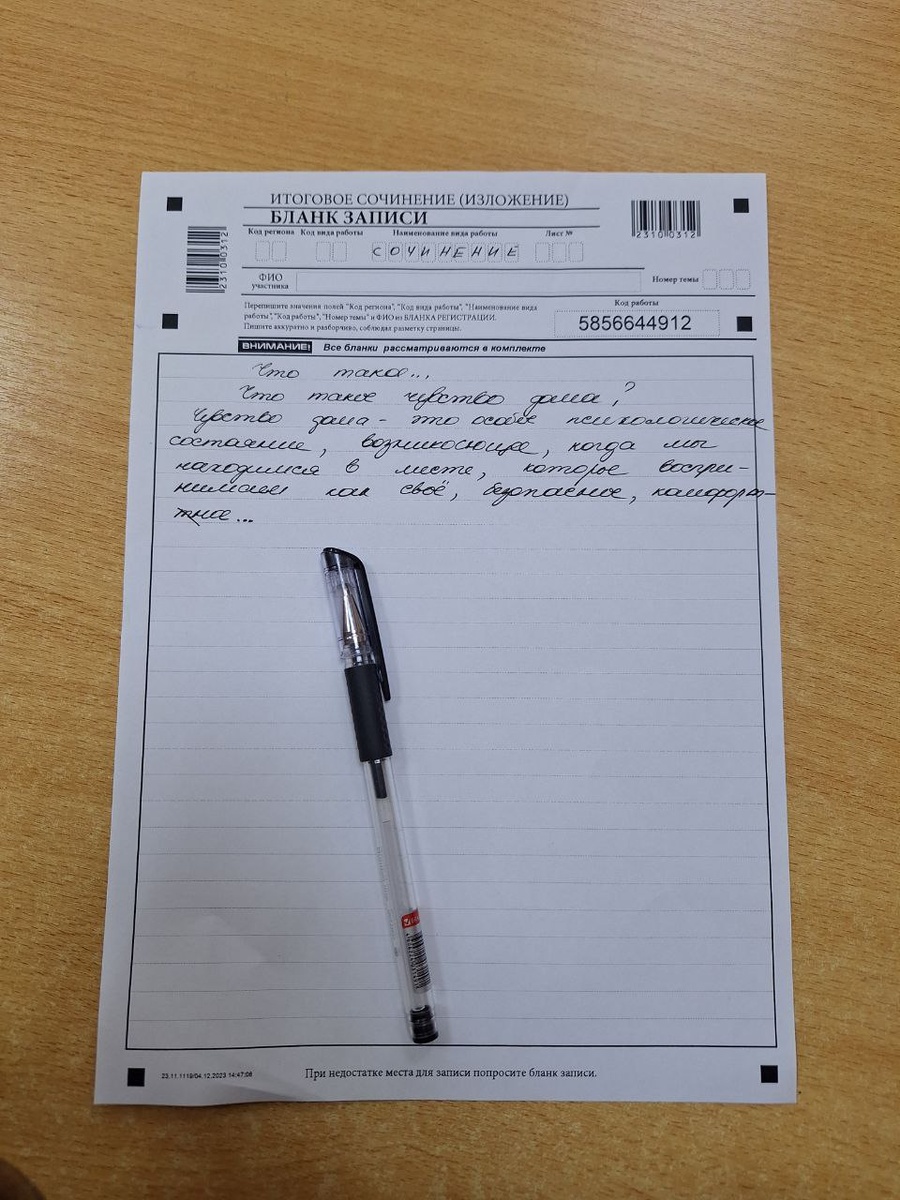 ИТОГОВОЕ СОЧИНЕНИЕ (ИЗЛОЖЕНИЕ)
БЛАНК ЗАПИСИ
2310 0312
2310 0312
Код региона Код вида работы Наименование вида работы Лист №
СОЧИНЕНИЕ
ФИО участника
Номер темы
Перепишите значения полей "Код региона", "Код вида работы", "Наименование вида
работы", "Код работы", "Номер темы" и ФИО из БЛАНКА РЕГИСТРАЦИИ.
Пишите аккуратно и разборчиво, соблюдая разметку страницы.
Код работы
5856644912
ВНИМАНИЕ! Все бланки рассматриваются в комплекте
Что такое...
Что такое чувство дома?
Чувство дома - это особое психологическое
состояние, возникающее, когда мы
находимся в месте, которое воспри-
нимаем как своё, безопасное, комфорт-
тное...
23.11.1119/04.12.2023 14:47:08
При недостатке места для записи попросите бланк записи.